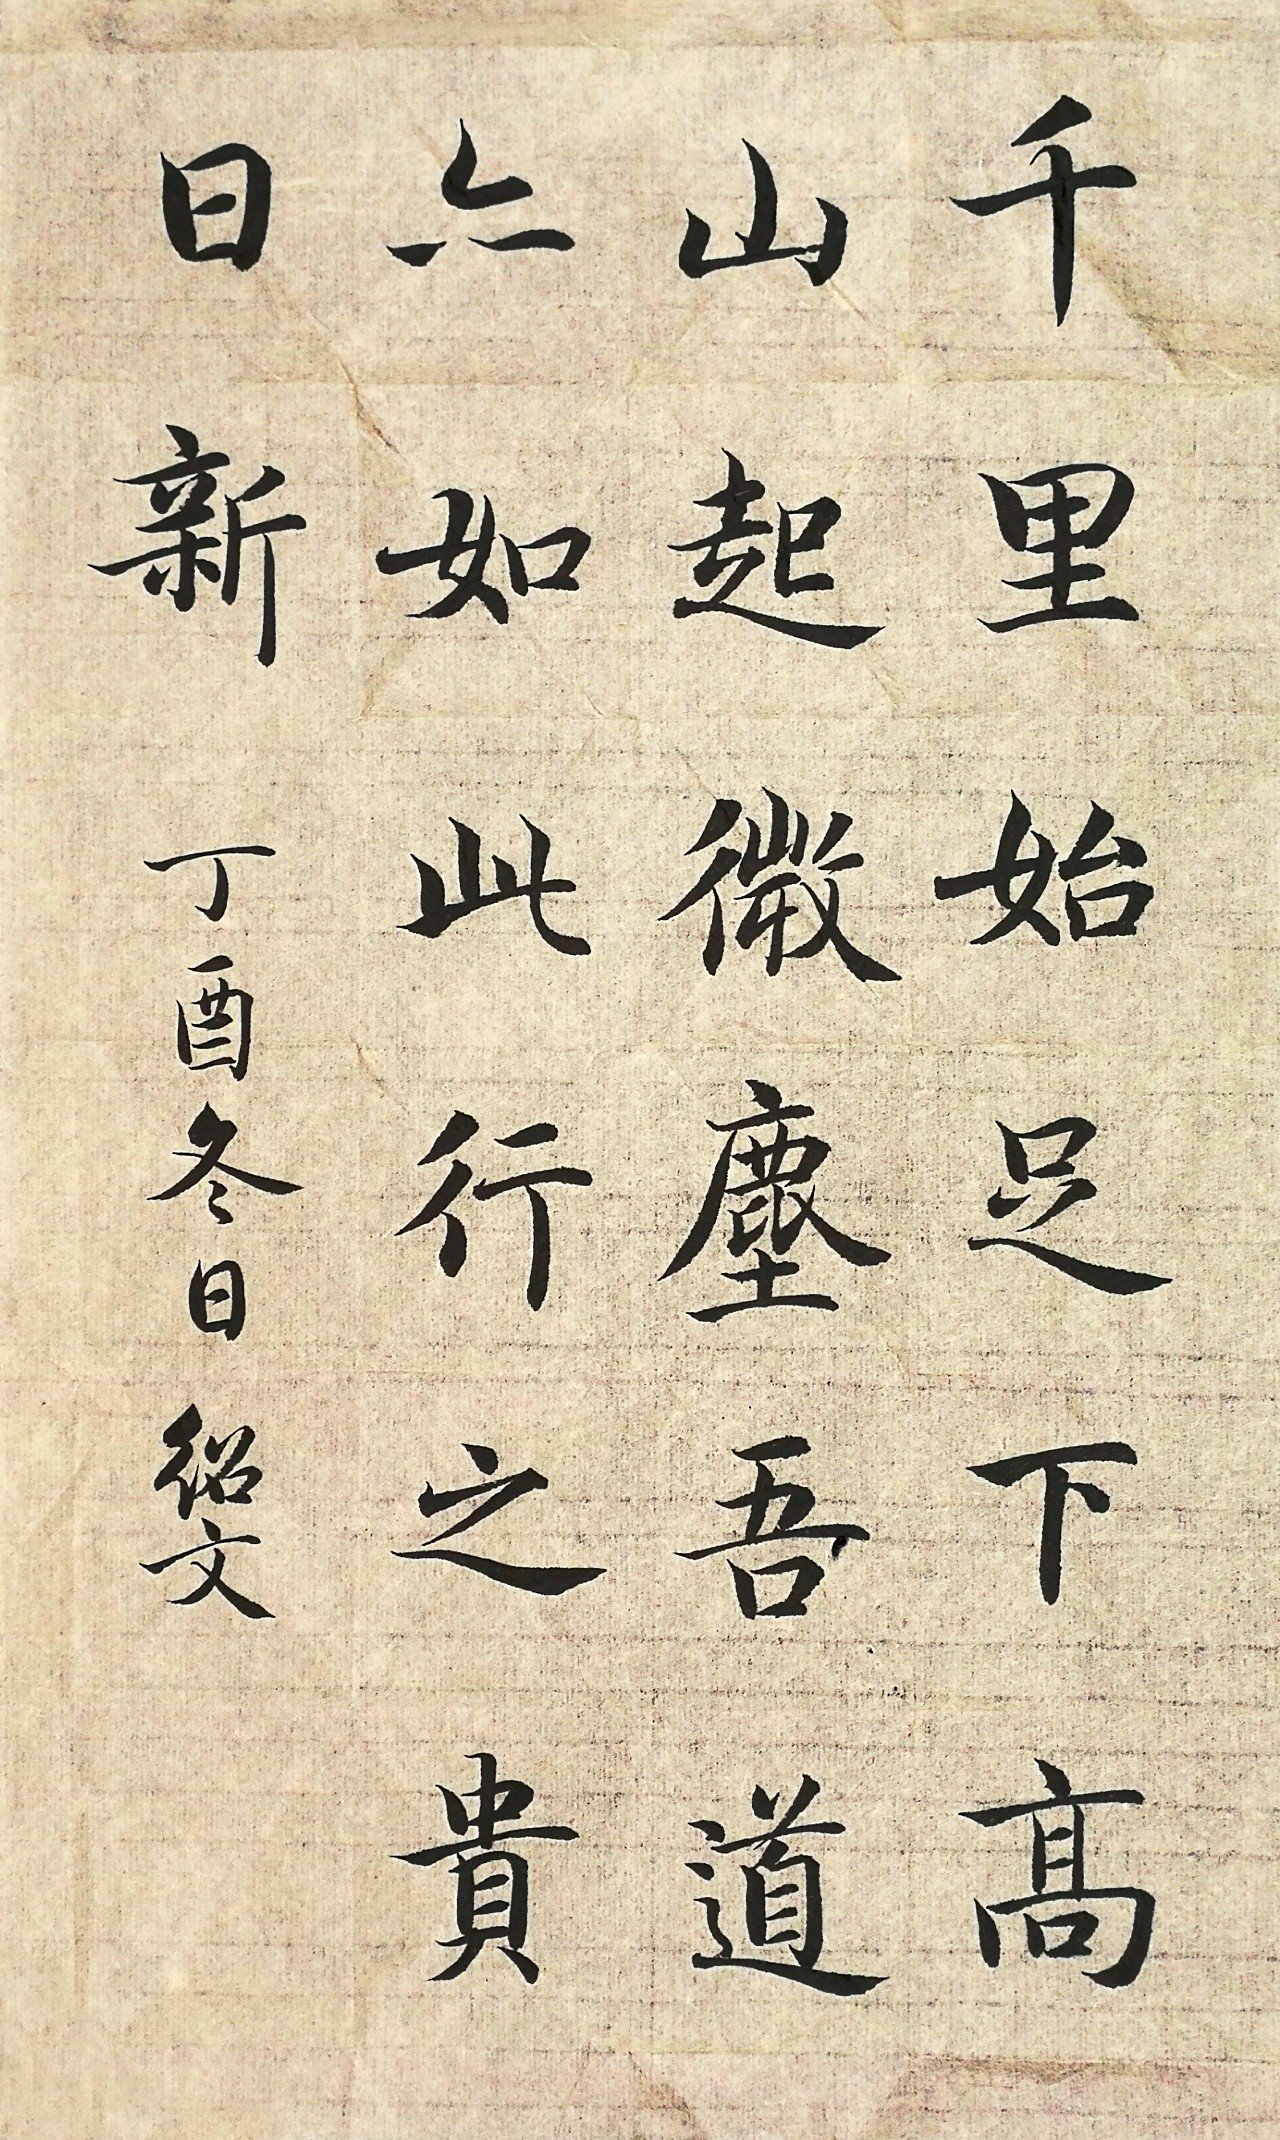 千里始足下高
山起微塵吾道
亦如此行之貴
日新
丁酉冬日 紹文